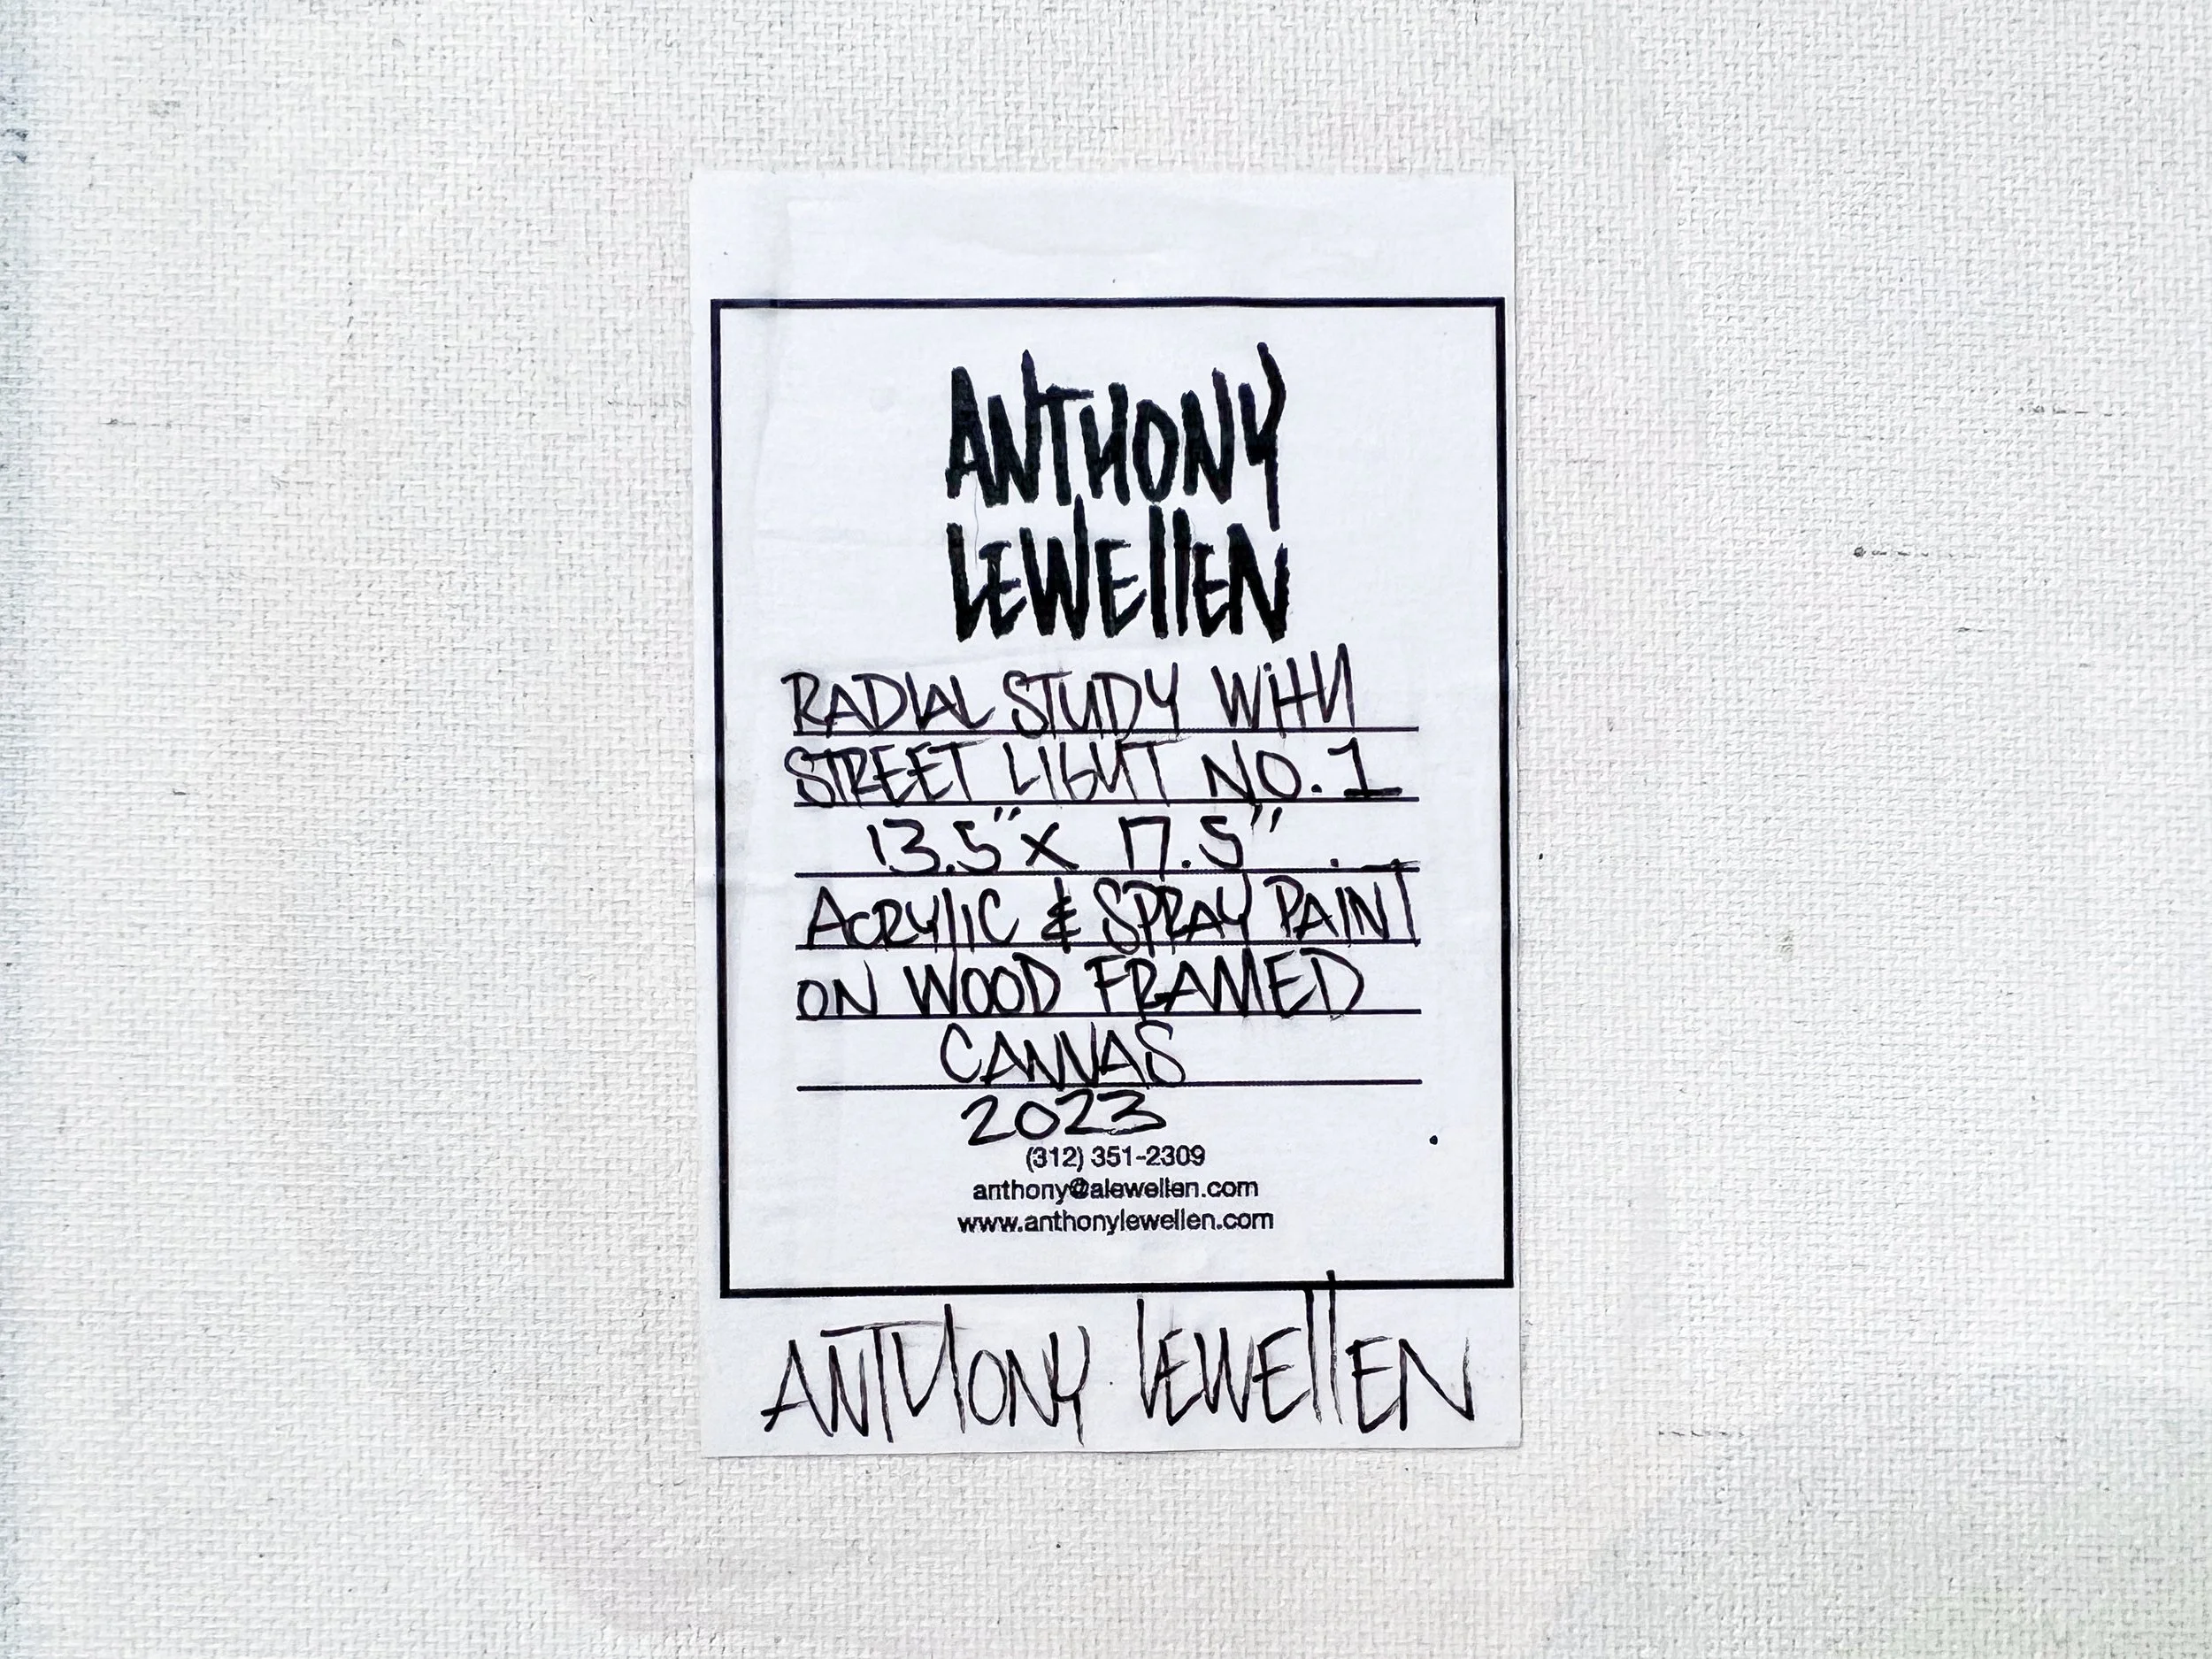 ANTHONY
LEWEllEN
RADIAL STUDY WitH
STREET LIGHT NO. 1
13.5" x 17.5"
ACRYlIC & SPRAY PAINT
ON WOOD FRAMED
CANVAS
2023
(312) 351-2309
anthony@alewellen.com
www.anthonylewellen.com
ANTHONY LEWEllEN